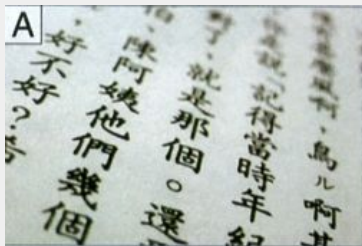 A
啊,鳥ル啊其
說「記得當時年
了,就是那個。還
伯、陳阿姨他們幾個
,好不好?